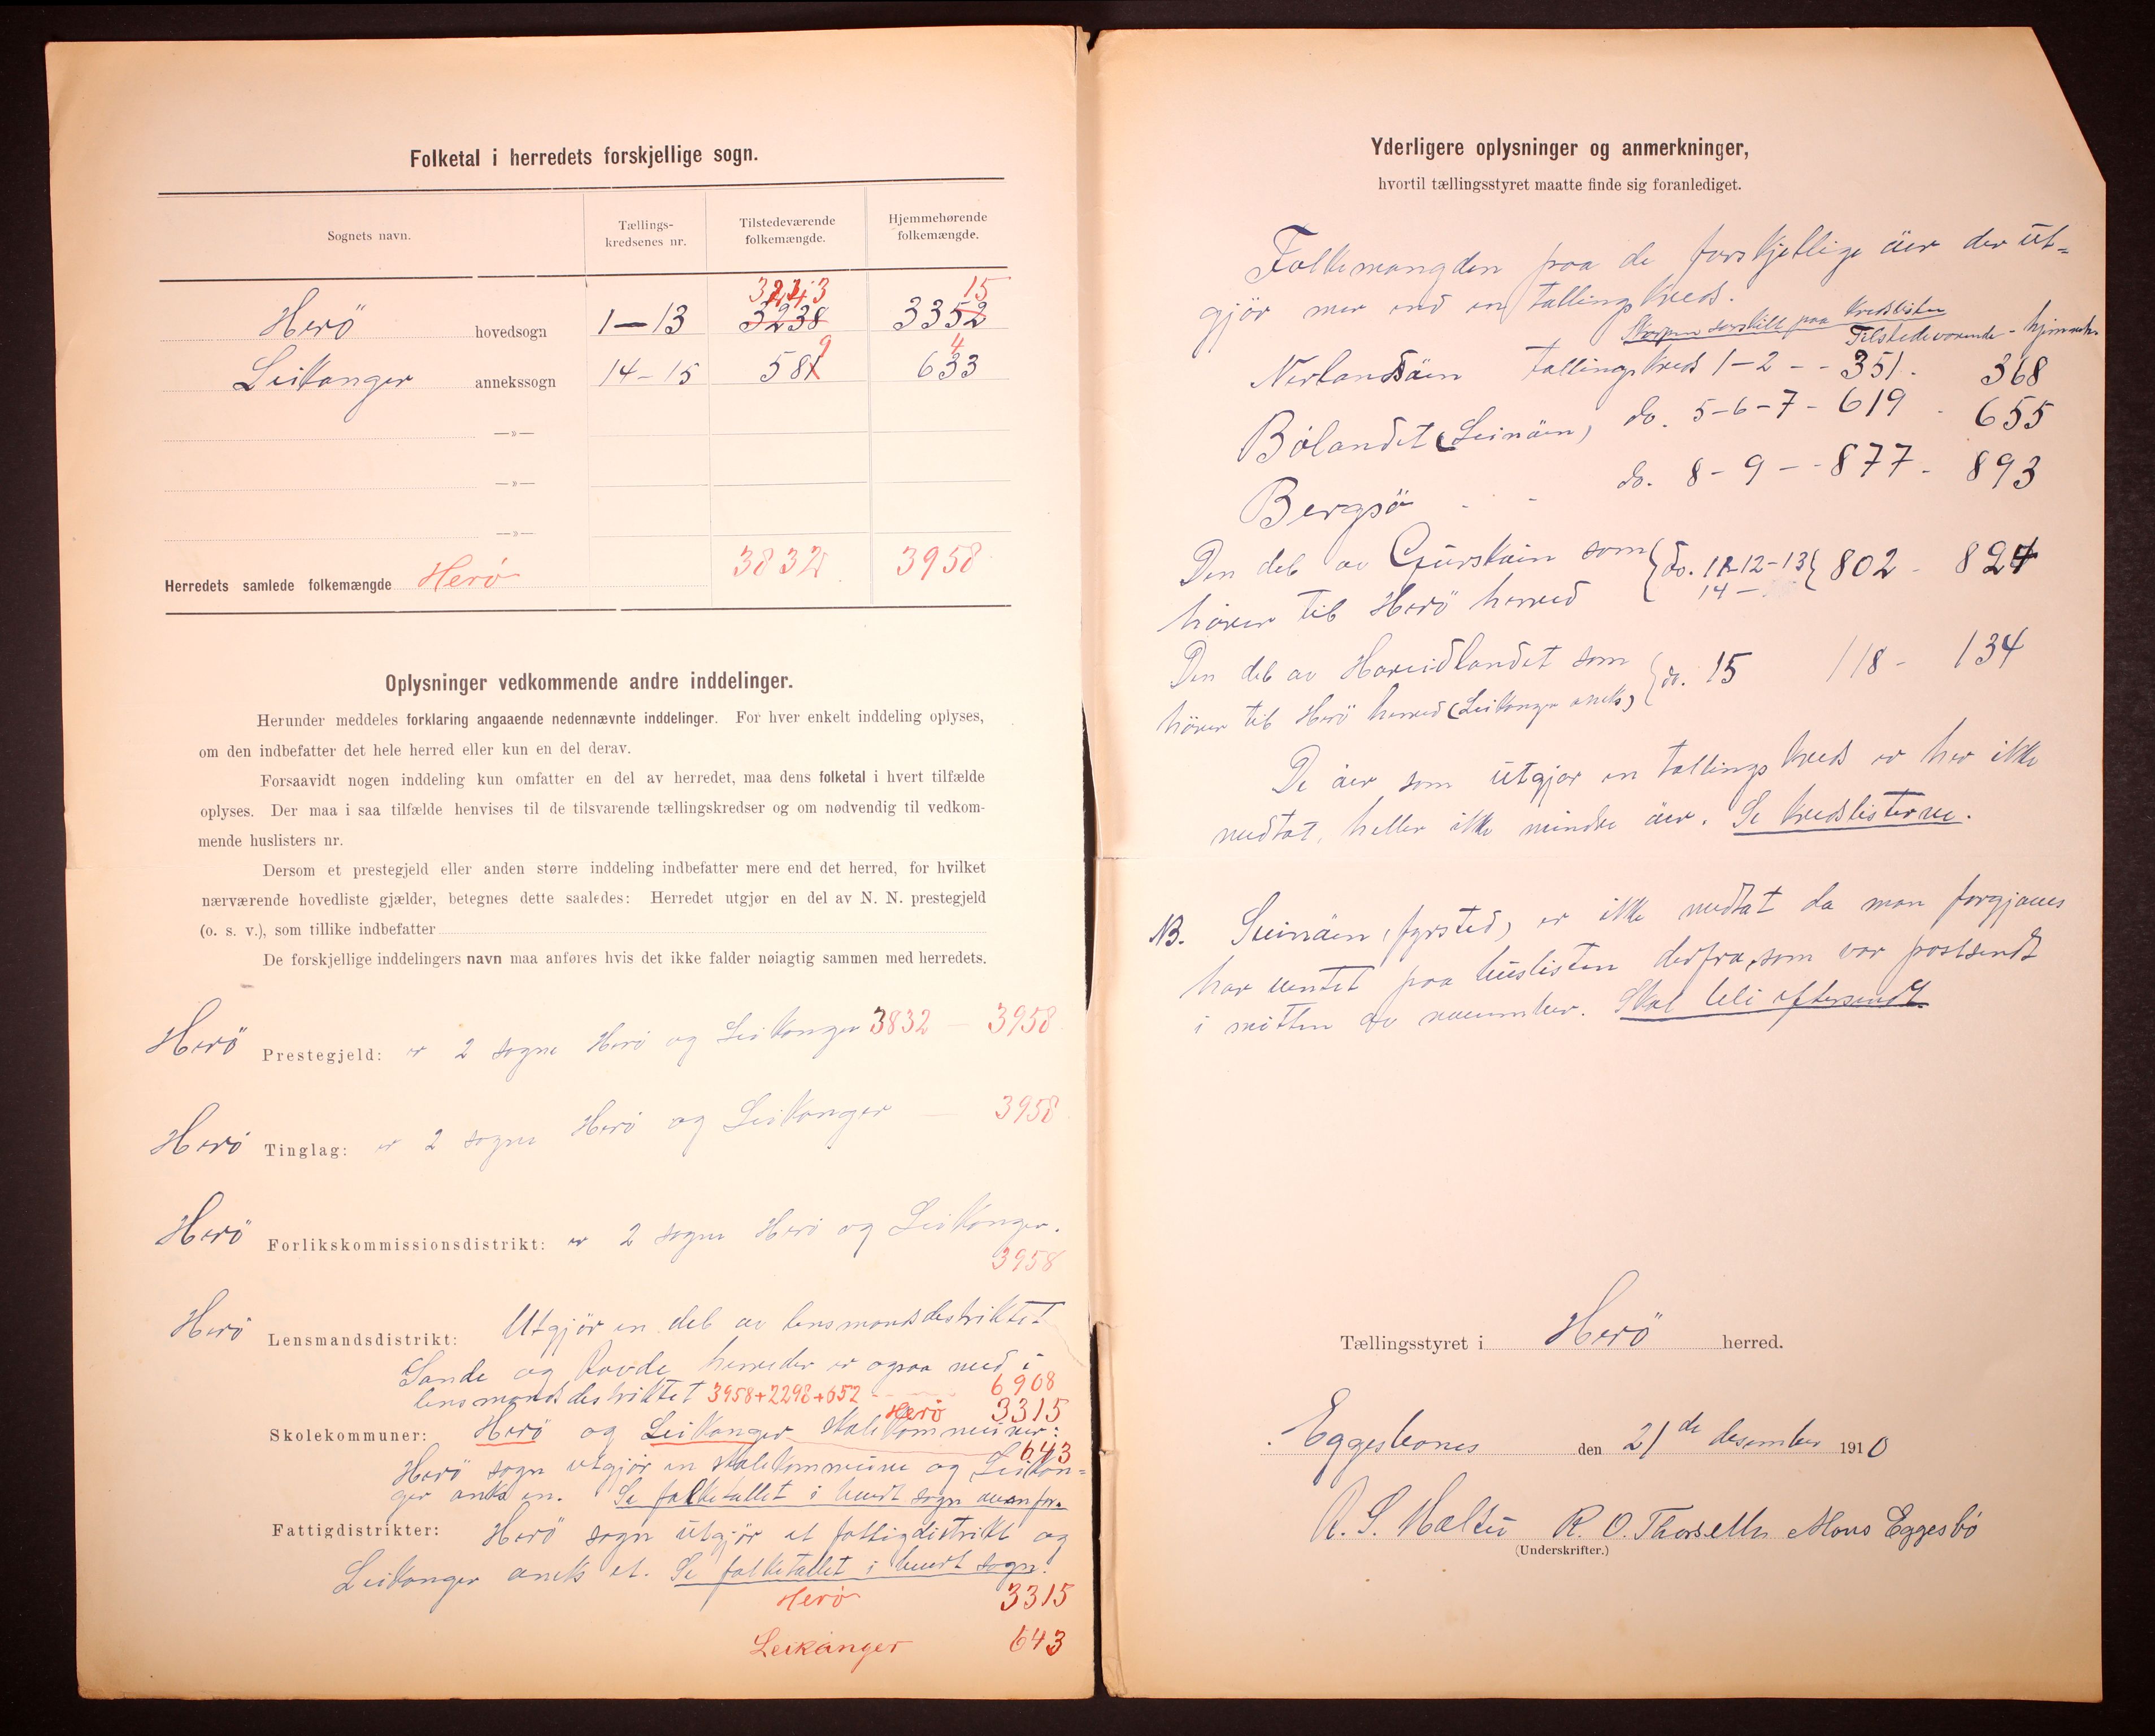 Folketal i herredets forskjellige sogn.
Sognets navn.
Tællings-
kredsenes nr.
Tilstedeværende
folkemængde.
Hjemmehørende
folkemængde.
3243 15
Herö hovedsogn 1—13 3238 3352
9 4
Leikanger annekssogn 14-15 581 633
—»—
—»—
—»—
Herredets samlede folkemængde Herö 3832 3958
Oplysninger vedkommende andre inddelinger.
Herunder meddeles forklaring angaaende nedennævnte inddelinger. For hver enkelt inddeling oplyses,
om den indbefatter det hele herred eller kun en del derav.
Forsaavidt nogen inddeling kun omfatter en del av herredet, maa dens folketal i hvert tilfælde
oplyses. Der maa i saa tilfælde henvises til de tilsvarende tællingskredser og om nødvendig til vedkom-
mende huslisters nr.
Dersom et prestegjeld eller anden større inddeling indbefatter mere end det herred, for hvilket
nærværende hovedliste gjælder, betegnes dette saaledes: Herredet utgjør en del av N. N. prestegjeld
(o. s. v.), som tillike indbefatter
De forskjellige inddelingers navn maa anføres hvis det ikke falder nøiagtig sammen med herredets.
Herö Prestegjeld: er 2 sogne Herö og Leikanger 3832 — 3958
Herö Tinglag: er 2 sogne Herö og Leikanger — 3958
Herö Forlikskommissionsdistrikt: er 2 sogne Herö og Leikanger.
3958
Herö Lensmandsdistrikt: Utgjör en del av lensmandsdestriktet
Sande og Rovde herreder er ogsaa med i
lensmandsdestriktet 3958+2298+652 6908
Herö 3315
Skolekommuner: Herö og Leikanger skolekommuner:
643
Herö sogn utgjör en skolekommune og Leikan=
ger anks en. Se folketallet i hvert sogn ovenfor.
Fattigdistrikter: Herö sogn utgjör et fattigdistrikt og
Leikanger aneks et. Se folketallet i hvert sogn.
Herö 3315
Leikanger 643
Yderligere oplysninger og anmerkninger,
hvortil tællingsstyret maatte finde sig foranlediget.
Folkemængden paa de forskjellige öer der ut=
gjör mer end en tællingskreds.
Skorpen særskilt paa kredslisten
Tilstedeværende - hjemmeh.
Nerlandsöen tællingskreds 1-2 - - 351 - 368
Bölandet (Leinöen) do. 5-6-7 - 619 - 655
Bergsö - - do. 8-9 - - 877 - 893
Den del av Gursköen som do. 11-12-13 802 - 824
hörer til Herö herred 14 —
Den del av Hareidlandet som do. 15 118 - 134
hörer til Herö herred (Leikanger aneks)
De öer som utgjör en tællingskreds er her ikke
medtat, heller ikke mindre öer. Se kredslisterne.
NB. Svinöen (fyrsted) er ikke medtat da man forgjæves
har ventet paa huslisten derfra, som var postsendt
i mitten av november. Skal bli eftersendt.
Tællingsstyret i Herö herred.
Eggesbones den 21de desember 1910
R. O. Thorseth Mons Eggesbö
(Underskrifter.)